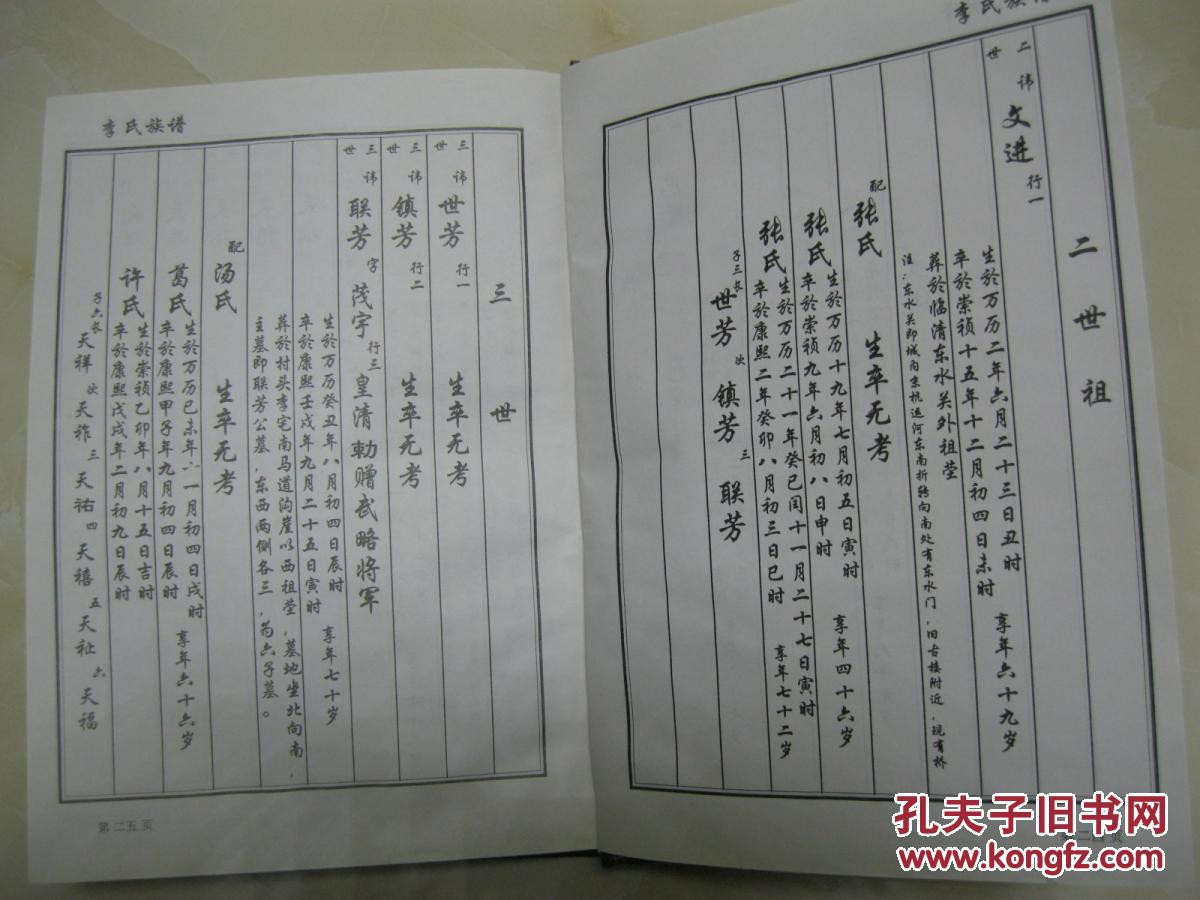 李氏族谱
二世祖
二世 讳 文进 行一
生於万历二年六月二十三日丑时
卒於崇祯十五年十二月初四日未时 享年六十九岁
葬於临清东水关外祖茔
注：东水关即城内京杭运河东南折转向南处有东水门，旧古楼附近，现有桥
配 张氏 生卒无考
张氏 生於万历十九年七月初五日寅时
卒於崇祯九年六月初八日申时 享年四十六岁
张氏 生於万历二十一年癸巳闰十一月二十七日寅时
卒於康熙二年癸卯八月初三日巳时 享年七十二岁
子三长 世芳 次 镇芳 三 联芳
李氏族谱
三世
三世 讳 世芳 行一 生卒无考
三世 讳 镇芳 行二 生卒无考
三世 讳 联芳 字 茂宇 行三 皇清勅赠武略将军
生於万历癸丑年八月初四日辰时
卒於康熙壬戌年九月二十五日寅时 享年七十岁
葬於村头李宅南马道沟崖以西祖茔，墓地坐北向南，
主墓即联芳公墓，东西两侧各三，为六子墓。
配 汤氏 生卒无考
葛氏 生於万历己未年 一月初四日戌时
卒於康熙甲子年九月初四日辰时 享年六十六岁
许氏 生於崇祯乙卯年八月十五日吉时
卒於康熙戊戌年二月初九日辰时
子六长 天祥 次 天祚 三 天祐 四 天禧 五 天祉 六 天福
第二五页
孔夫子旧书网
www.kongfz.com